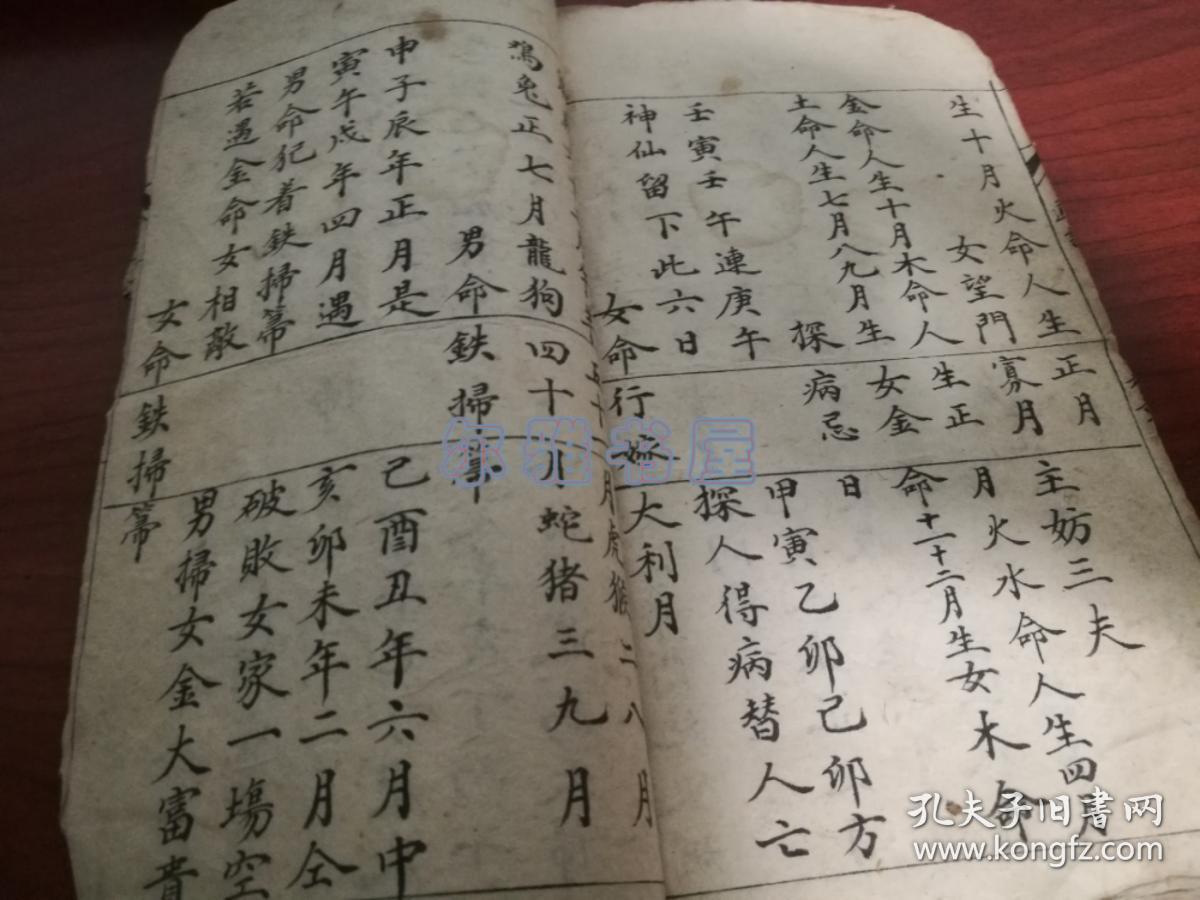 生十月火命人生正月
主妨三夫
女望門寡月
月火水命人生四月
金命人生十月木命人生正
命十一十二月生女木命
土命人生七月八九月生女金
探病忌日
壬寅壬午連庚午
甲寅乙卯己卯方
神仙留下此六日
探人得病替人亡
女命行嫁大利月
月虎猴二八月
鳮兔正七月龍狗四十月蛇猪三九月
男命鉄掃箒
申子辰年正月是
己酉丑年六月中
寅午戌年四月遇
亥卯未年二月仝
男命犯着鉄掃箒
破敗女家一塲空
若遇金命女相敵
男掃女金大富貴
女命鉄掃箒
尔雅书屋
孔夫子旧书网
www.kongfz.com